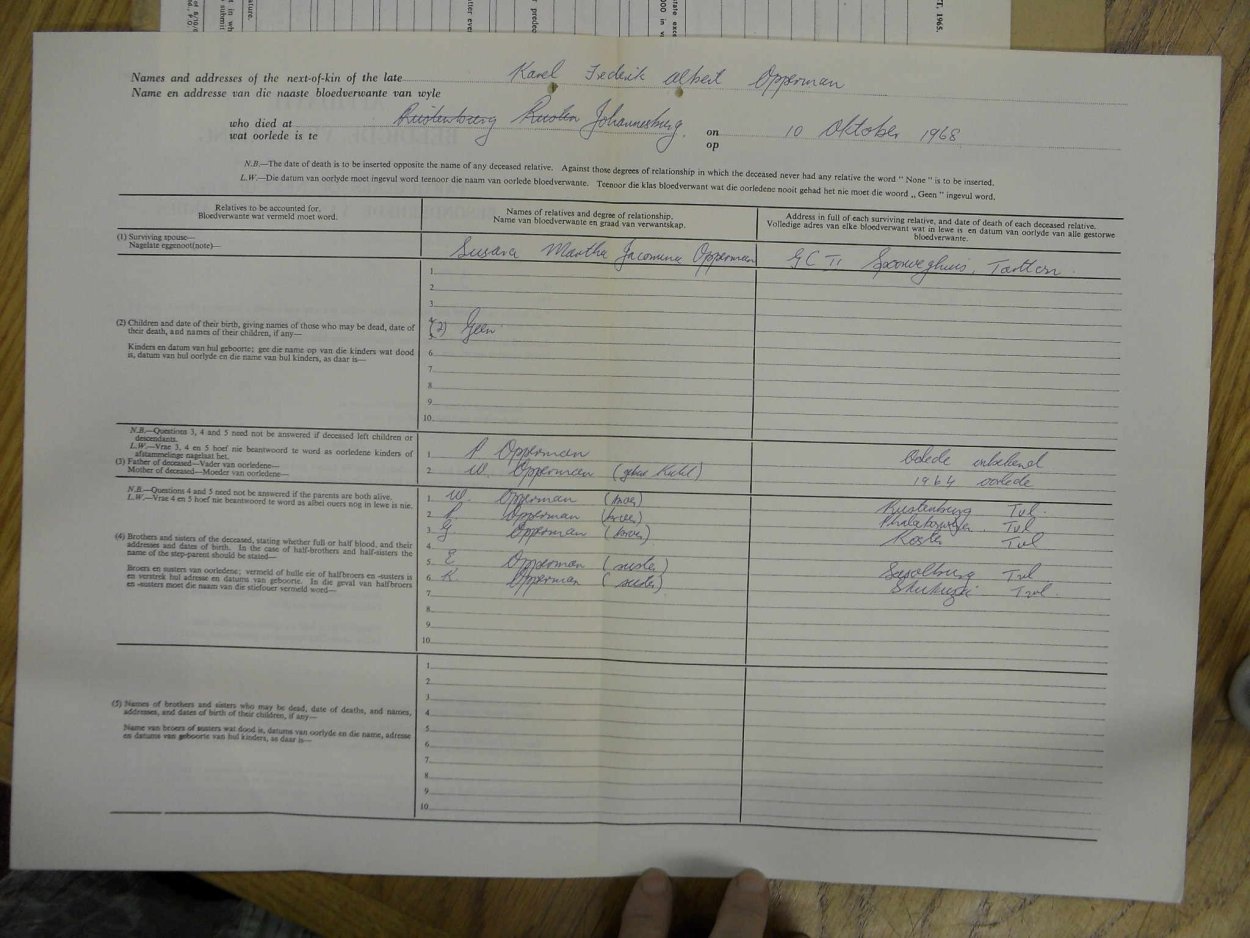 T, 1965.
Names and addresses of the next-of-kin of the late Karel Frederik Albert Opperman
Name en addresse van die naaste bloedverwante van wyle
who died at Rustenburg Rusten Johannesburg. on 10 Oktober 1968
wat oorlede is te op
N.B.—The date of death is to be inserted opposite the name of any deceased relative. Against those degrees of relationship in which the deceased never had any relative the word " None " is to be inserted.
L.W.—Die datum van oorlyde moet ingevul word teenoor die naam van oorlede bloedverwante. Teenoor die klas bloedverwant wat die oorledene nooit gehad het nie moet die woord „ Geen " ingevul word.
Relatives to be accounted for.
Bloedverwante wat vermeld moet word.
Names of relatives and degree of relationship.
Name van bloedverwante en graad van verwantskap.
Address in full of each surviving relative, and date of death of each deceased relative.
Volledige adres van elke bloedverwant wat in lewe is en datum van oorlyde van alle gestorwe
bloedverwante.
(1) Surviving spouse—
Nagelate eggenoot(note)—
Susara Martha Jacomina Opperman
Spoorweghuis,
(2) Children and date of their birth, giving names of those who may be dead, date of
their death, and names of their children, if any—
Kinders en datum van hul geboorte; gee die name op van die kinders wat dood
is, datum van hul oorlyde en die name van hul kinders, as daar is—
1.
2.
3.
(2) Geen
6.
7.
8.
9.
10.
N.B.—Questions 3, 4 and 5 need not be answered if deceased left children or
descendants.
L.W.—Vrae 3, 4 en 5 hoef nie beantwoord te word as oorledene kinders of
afstammelinge nagelaat het.
(3) Father of deceased—Vader van oorledene—
Mother of deceased—Moeder van oorledene—
1. P Opperman
2. W. Opperman
1964 oorlede
N.B.—Questions 4 and 5 need not be answered if the parents are both alive.
L.W.—Vrae 4 en 5 hoef nie beantwoord te word as albei ouers nog in lewe is nie.
(4) Brothers and sisters of the deceased, stating whether full or half blood, and their
addresses and dates of birth. In the case of half-brothers and half-sisters the
name of the step-parent should be stated—
Broers en susters van oorledene; vermeld of hulle eie of halfbroers en -susters is
en verstrek hul adresse en datums van geboorte. In die geval van halfbroers
en -susters moet die naam van die stiefouer vermeld word—
1. W. Opperman (broer) Rustenburg Tvl.
2. P Opperman (broer) Phalaborwa Tvl
3. G Opperman (broer) Koster Tvl
4.
5. E Opperman (suster) Sasolburg Tvl
6. K Opperman (suster) Tvl.
7.
8.
9.
10.
(5) Names of brothers and sisters who may be dead, date of deaths, and names,
addresses, and dates of birth of their children, if any—
Name van broers of susters wat dood is, datums van oorlyde en die name, adresse
en datums van geboorte van hul kinders, as daar is—
1.
2.
3.
4.
5.
6.
7.
8.
9.
10.